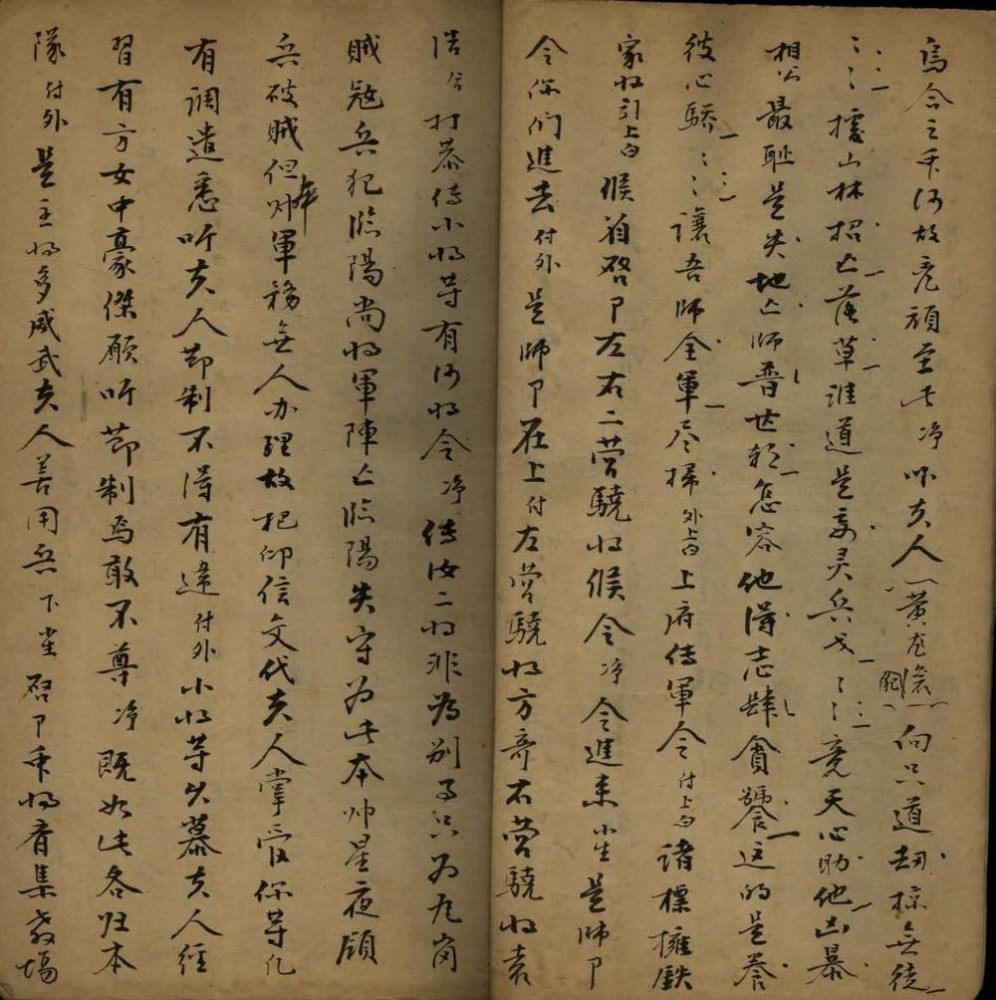 烏合之眾何故亮頑至此 净 吓夫人 黄龙滚 向只道刼掠無徒
據山林招亡落草誰道是妄灵兵戈 竟天心助他凶暴
相公最耻是失地亡师普世 怎容他得志肆貪饕这的是養
彼心驕 讓吾师全軍尽掃 外上白 上府傳軍令 付上白 諸標擁鉄
家 将引上白 候着啓了左右二营驍将候令 净 令進来 坐 是 师了
令你们進去 付外 是 师了在上 付 左营驍将方奇右营驍将袁
浩 仝 打恭 傳小将等有何将令 净 傳汝二将非為别事只为九岗
贼冦兵犯臨陽尚将軍陣亡臨陽失守为此本帅星夜領
兵破贼但本州軍務無人办理故把印信文代夫人掌管你等凡
有調遣悉听夫人节制不得有違 付外 小将等久慕夫人經
習有方女中豪傑願听节制焉敢不尊 净 既如此各归本
隊 付外 是主将多威武夫人善用兵 下 坐 啓了眾将齊集教場